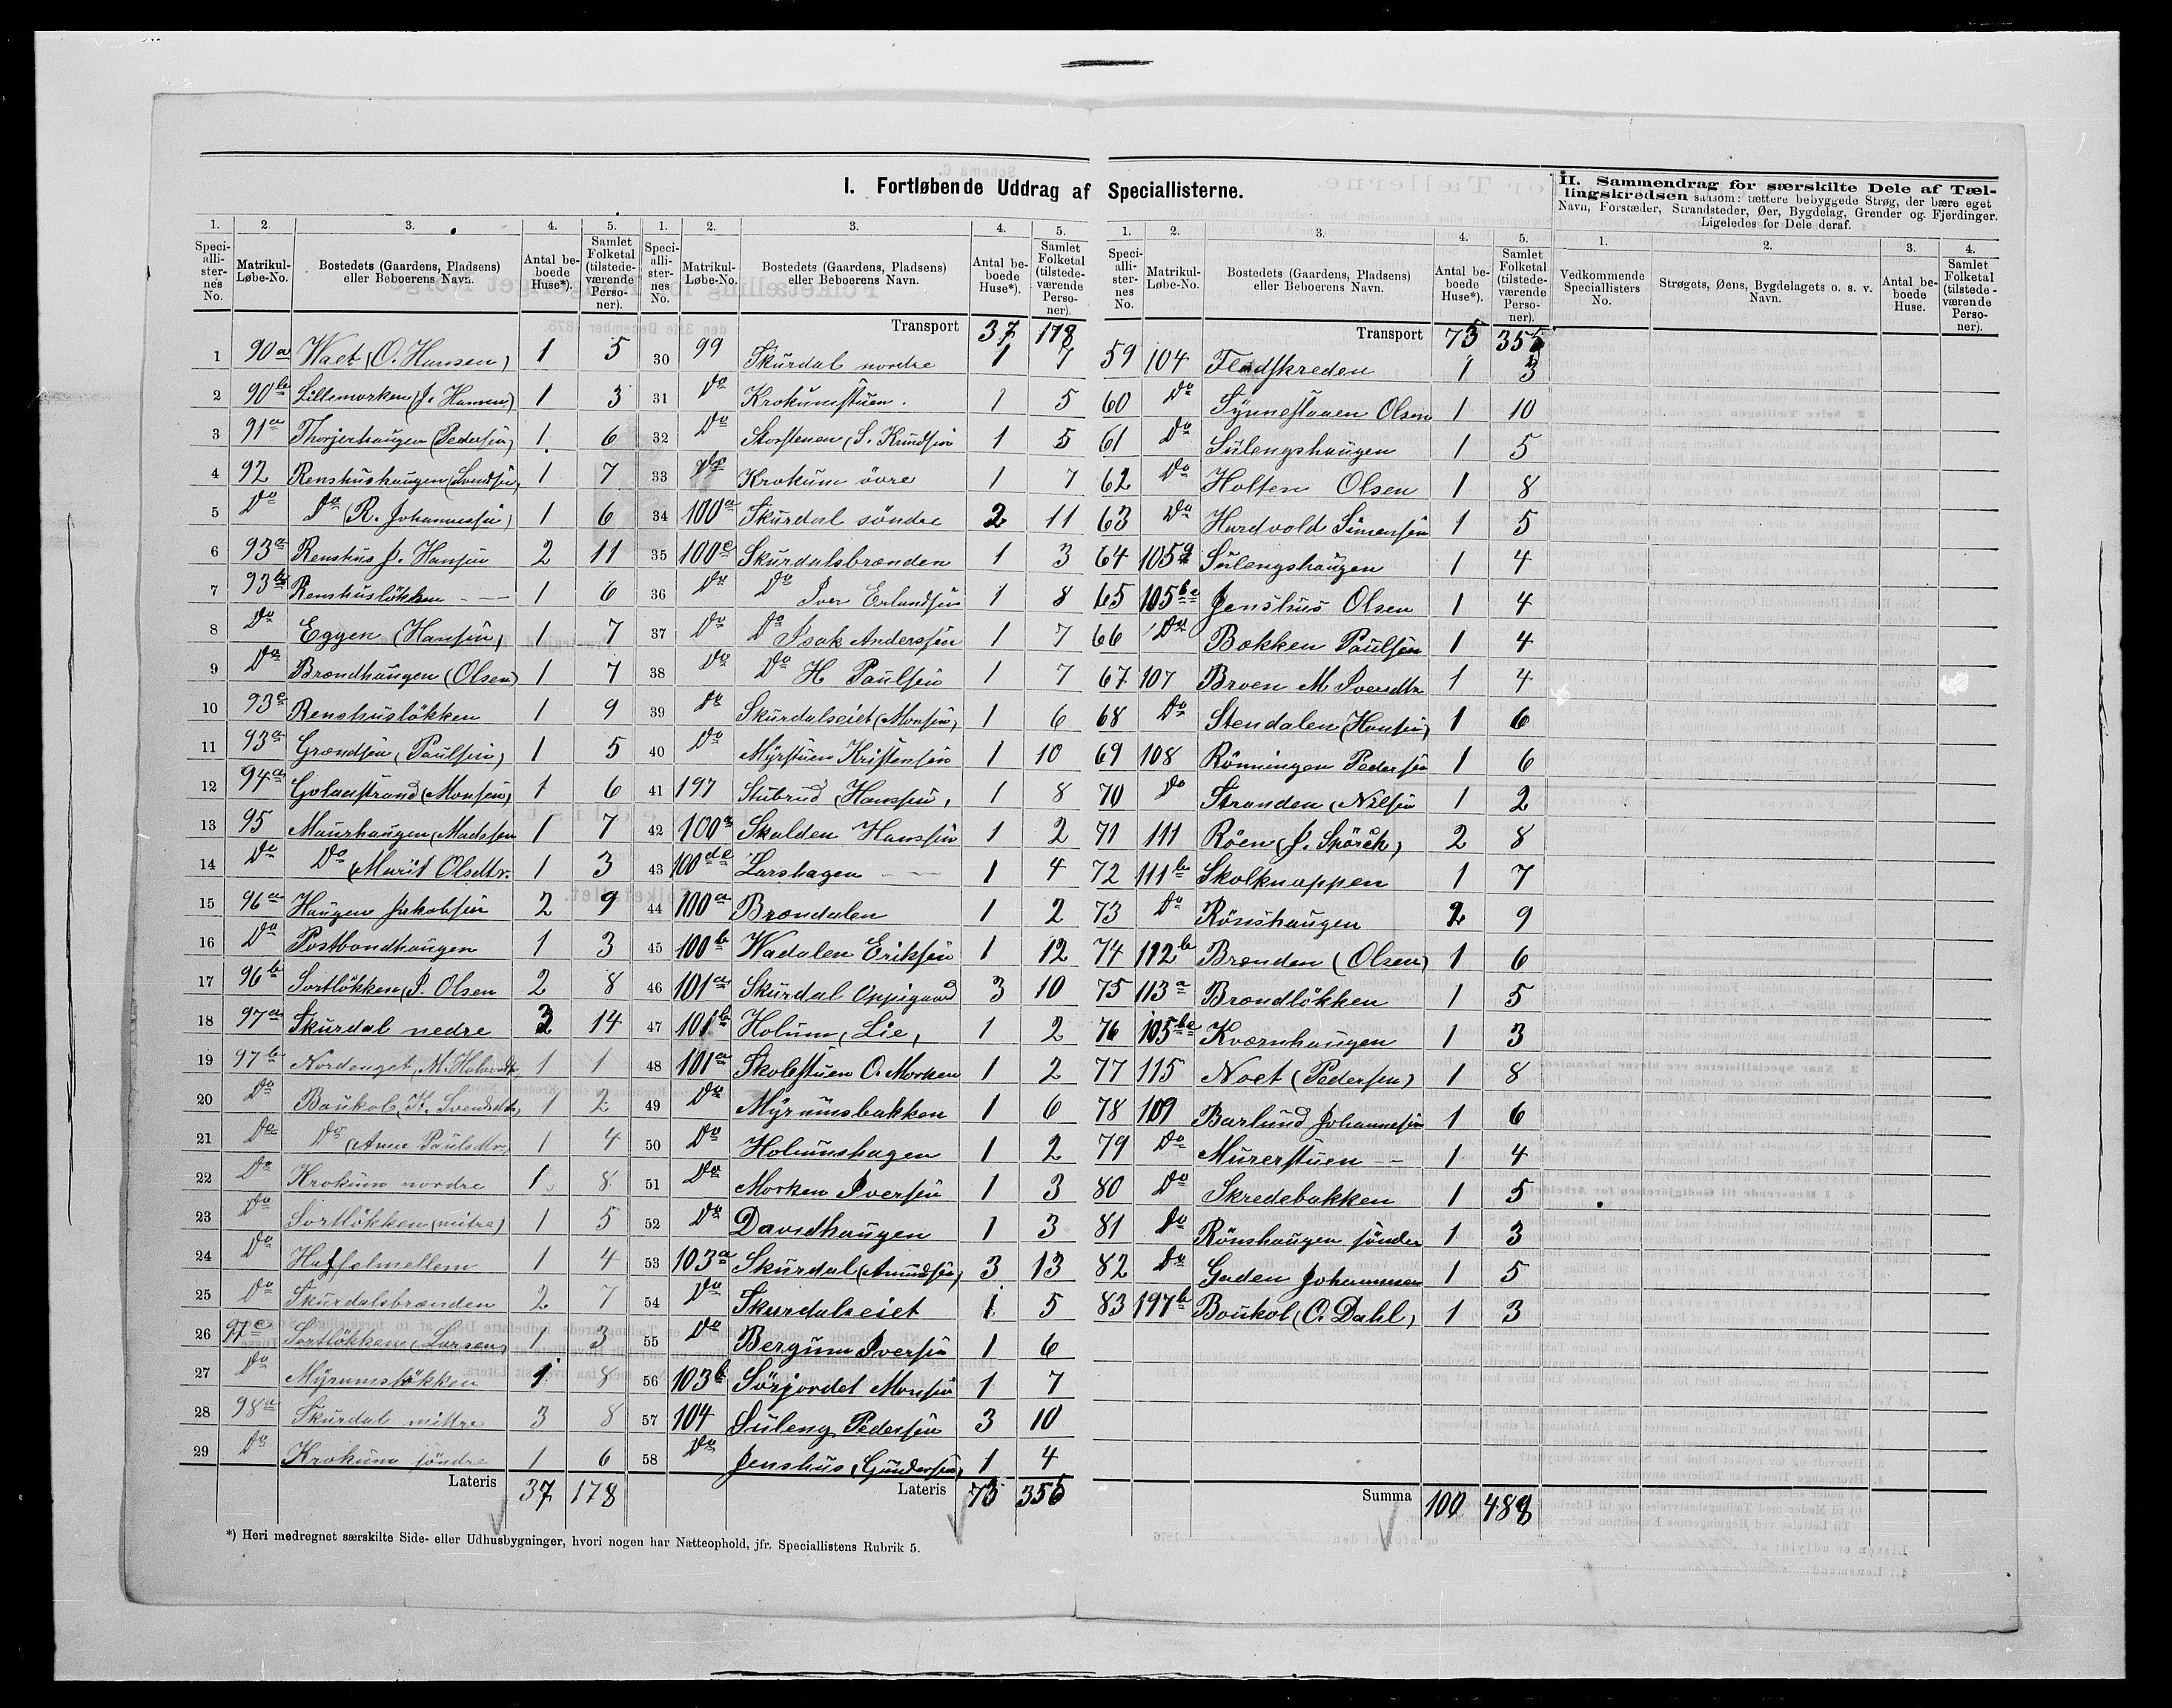 I. Fortløbende Uddrag af Speciallisterne.
1. 2. 3. 4. 5.
Speci-alli-ster-nes No. Matrikul-Løbe-No. Bostedets (Gaardens, Pladsens) eller Beboerens Navn. Antal be-boede Huse*). Samlet Folketal (tilstede-værende Perso-ner).
1 90a Waet (O. Hansen) 1 5
2 90b Lillemorken (J. Hansen) 1 3
3 91a Thorjerhaugen (Pedersen) 1 6
4 92 Renshushaugen (Svendsen) 1 7
5 Do Do (R. Johannesen) 1 6
6 93a Renshus J. Hansen 2 11
7 93b Renshusløkken 1 6
8 Do Eggen (Hansen) 1 7
9 Do Brændhaugen (Olsen) 1 7
10 93c Renshusløkken 1 9
11 93a Grændsen (Paulsen) 1 5
12 94a Golaastrand (Monsen) 1 6
13 95 Maurhaugen (Madssen 1 7
14 Do Do (Marit Olsdtr. 1 3
15 96a Haugen Jakobsen 2 9
16 Do Postbondhaugen 1 3
17 96b Sortløkken (P. Olsen 2 8
18 97a Skurdal nedre 3 14
19 97b Nordenget (M. 1 1
20 Do Baukol (K. Svendsdtr) 1 2
21 Do Do (Anne Paulsdtr) 1 4
22 Do Krokum nordre 1 8
23 Do Sortløkken (mitre) 1 5
24 Do Haffolmellem 1 4
25 Do Skurdalsbrænden 2 7
26 97c Sortløkken (Larsen) 1 3
27 Do Myrumsløkken 1 8
28 98a Skurdal mittre 3 8
29 Do Krokum söndre 1 6
Lateris 37 178
1. 2. 3. 4. 5.
Speci-alli-ster-nes No. Matrikul-Løbe-No. Bostedets (Gaardens, Pladsens) eller Beboerens Navn. Antal be-boede Huse*). Samlet Folketal (tilstede-værende Perso-ner).
Transport 37 178
30 99 Skurdal nordre 1 7
31 Do Krokumstuen. 1 5
32 Do Storstenen (S. Knudsen 1 5
33 Do Krokum øvre 1 7
34 100a Skurdal söndre 2 11
35 100c Skurdalsbrænden 1 3
36 Do Do Iver Erlandsen 1 8
37 Do Do Isak Anderssen 1 7
38 Do Do H Paulsen 1 7
39 Do Skurdalseiet (Monsen) 1 6
40 Do Myrstuen Kristensen 1 10
41 197 Stubrud (Hanssen) 1 8
42 100a Skalden Hanssen 1 2
43 100de Larshagen 1 4
44 100a Brændalen 1 2
45 100b Wadalen Eriksen 1 12
46 101a Skurdal Oppigaard 3 10
47 101b Holum (Lie) 1 2
48 101a Skolestuen O. Morken 1 2
49 Do Myrumsbakken 1 6
50 Do Holumshagen 1 2
51 Do Morken Iversen 1 3
52 Do Davidhaugen 1 3
53 103a Skurdal (Amundsen) 3 13
54 Do Skurdalseiet 1 5
55 Do Bergum Iversen 1 6
56 103b Sörjordet Monsen 1 7
57 104 Suleng Pedersen 3 10
58 Do Jenshus (Gundersen) 1 4
Lateris 73 355
1. 2. 3. 4. 5.
Speci-alli-ster-nes No. Matrikul-Løbe-No. Bostedets (Gaardens, Pladsens) eller Beboerens Navn. Antal be-boede Huse*). Samlet Folketal (tilstede-værende Perso-ner).
Transport 73 355
59 104 Flodskreden 1 3
60 Do Synnestauen Olsen 1 10
61 Do Sulengshaugen 1 5
62 Do Holten Olsen 1 8
63 Do Hardvold Simensen 1 5
64 105a Sulengshaugen 1 4
65 105bc Jenshus Olsen 1 4
66 Do Bakken Paulsen 1 4
67 107 Broen M Iversdtr 1 4
68 Do Stendalen (Hansen) 1 6
69 108 Rønningen Pedersen 1 6
70 Do Stranden (Nilsen 1 2
71 111 Röen (J. Spörck) 2 8
72 111b Skolknappen 1 7
73 Do Rönshaugen 2 9
74 112b Brænden (Olsen) 1 6
75 113a Brændløkken 1 5
76 105bc Kværnhaugen 1 3
77 115 Noet (Pedersen) 1 8
78 109 Barlund Johannesen 1 6
79 Do Murerstuen 1 4
80 Do Skredebakken 1 5
81 Do Rönshaugen söndre 1 3
82 Do Gaden Johannesen 1 5
83 197b Boukol (O. Dahl) 1 3
Summa 100 488
II. Sammendrag for særskilte Dele af Tæl-
lingskredsen saasom: tættere bebyggede Strøg, der bære eget
Navn, Forstæder, Strandsteder, Øer, Bygdelag, Grender og Fjerdinger.
Ligeledes for Dele deraf.
1. 2. 3. 4.
Vedkommende Speciallisters No. Strøgets, Øens, Bygdelagets o. s. v. Navn. Antal be-boede Huse. Samlet Folketal (tilstede-værende Perso-ner).
*) Heri medregnet særskilte Side- eller Udhusbygninger, hvori nogen har Natteophold, jfr. Speciallistens Rubrik 5.